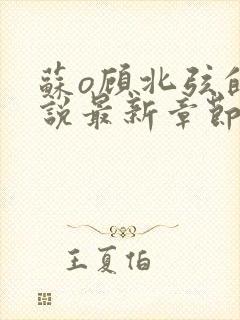 蘇o顾北弦的
說最新章節
王夏伯